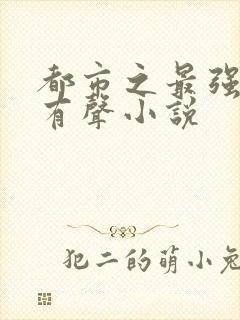 都市之最强
有聲小說
犯二的萌小兔